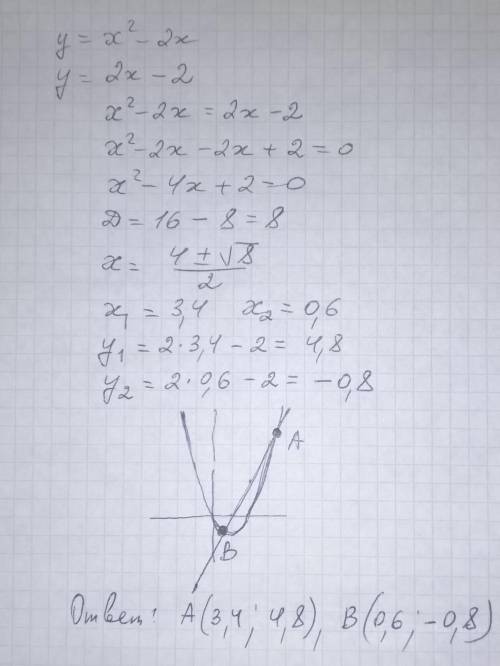 y = x² - 2x
y = 2x - 2
x² - 2x = 2x - 2
x² - 2x - 2x + 2 = 0
x² - 4x + 2 = 0
D = 16 - 8 = 8
x = (4 ± √8)/2
x₁ = 3,4 x₂ = 0,6
y₁ = 2·3,4 - 2 = 4,8
y₂ = 2·0,6 - 2 = -0,8
A
B
Ответ: A(3,4; 4,8), B(0,6; -0,8)